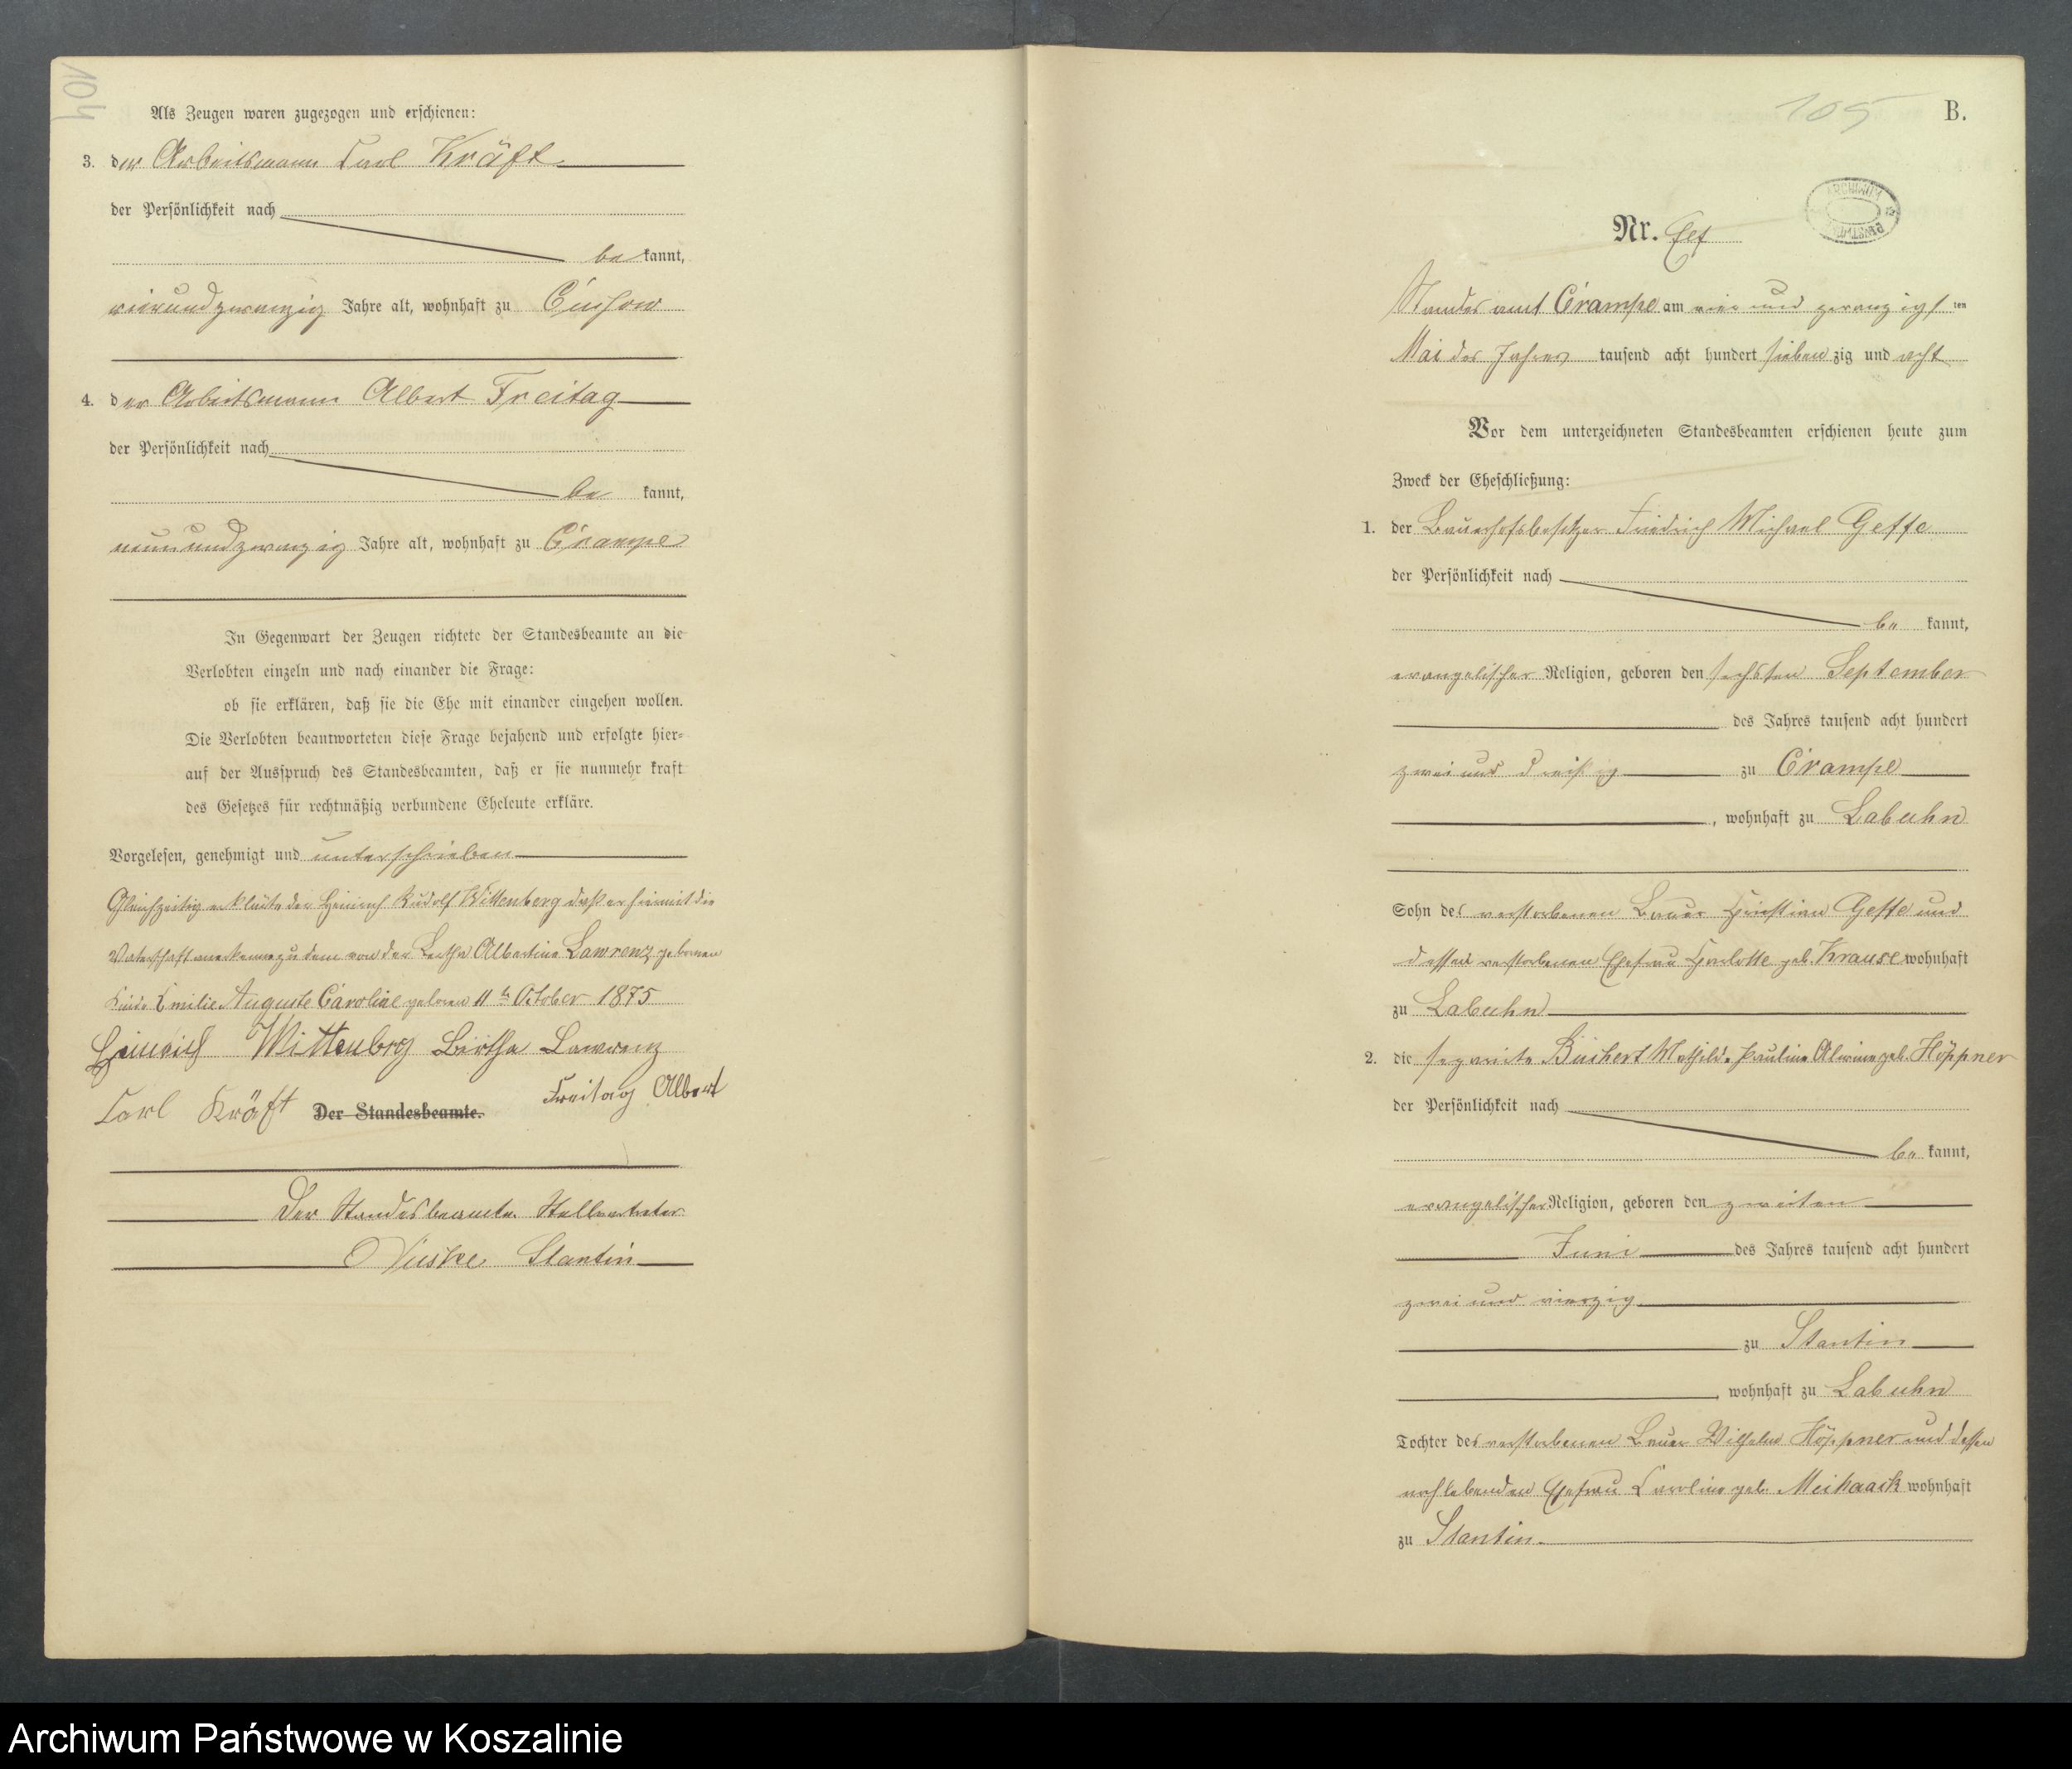 104
Als Zeugen waren zugezogen und erschienen:
3. der Arbeitsmann Carl Kräft
der Persönlichkeit nach
be kannt,
vierundzwanzig Jahre alt, wohnhaft zu Cussow
4. der Arbeitsmann Albert Freitag
der Persönlichkeit nach
be kannt,
neunundzwanzig Jahre alt, wohnhaft zu Crampe
In Gegenwart der Zeugen richtete der Standesbeamte an die
Verlobten einzeln und nach einander die Frage:
ob sie erklären, daß sie die Ehe mit einander eingehen wollen.
Die Verlobten beantworteten diese Frage bejahend und erfolgte hier-
auf der Ausspruch des Standesbeamten, daß er sie nunmehr kraft
des Gesetzes für rechtmäßig verbundene Eheleute erkläre.
Vorgelesen, genehmigt und unterschrieben
Gleichzeitig erklärte der Heinrich Rudolf Wittenberg daß er hiermit die
Vaterschaft anerkenne zu dem von der Bertha Albertine Lawrenz geborenen
Kinde Emilie Auguste Caroline geboren 11ten October 1875
Heinrich Wittenberg Bertha Lawrenz
Carl Kräft Freitag Albert
Der Standesbeamte.
Der Standesbeamte Stellvertreter
Stantin
105 B.
ARCHIWUM
Nr. Elf
Standesamt Crampe am vier und zwanzigsten
Mai des Jahres tausend acht hundert sieben zig und acht
Vor dem unterzeichneten Standesbeamten erschienen heute zum
Zweck der Eheschließung:
1. der Bauerhofsbesitzer Friedrich Michael Geffe
der Persönlichkeit nach
be kannt,
evangelischer Religion, geboren den sechsten September
des Jahres tausend acht hundert
zwei und dreißig zu Crampe
, wohnhaft zu Labuhn
Sohn des verstorbenen Bauer Christian Geffe und
dessen verstorbenen Ehefrau Charlotte geb. Krause wohnhaft
zu Labuhn
2. die separirte Büchert Mathilde Pauline Alwine geb. Höppner
der Persönlichkeit nach
be kannt,
evangelischer Religion, geboren den zweiten
Juni des Jahres tausend acht hundert
zwei und vierzig
zu Stantin
, wohnhaft zu Labuhn
Tochter des verstorbenen Bauer Wilhelm Höppner und dessen
noch lebenden Ehefrau Caroline geb. wohnhaft
zu Stantin
Archiwum Państwowe w Koszalinie